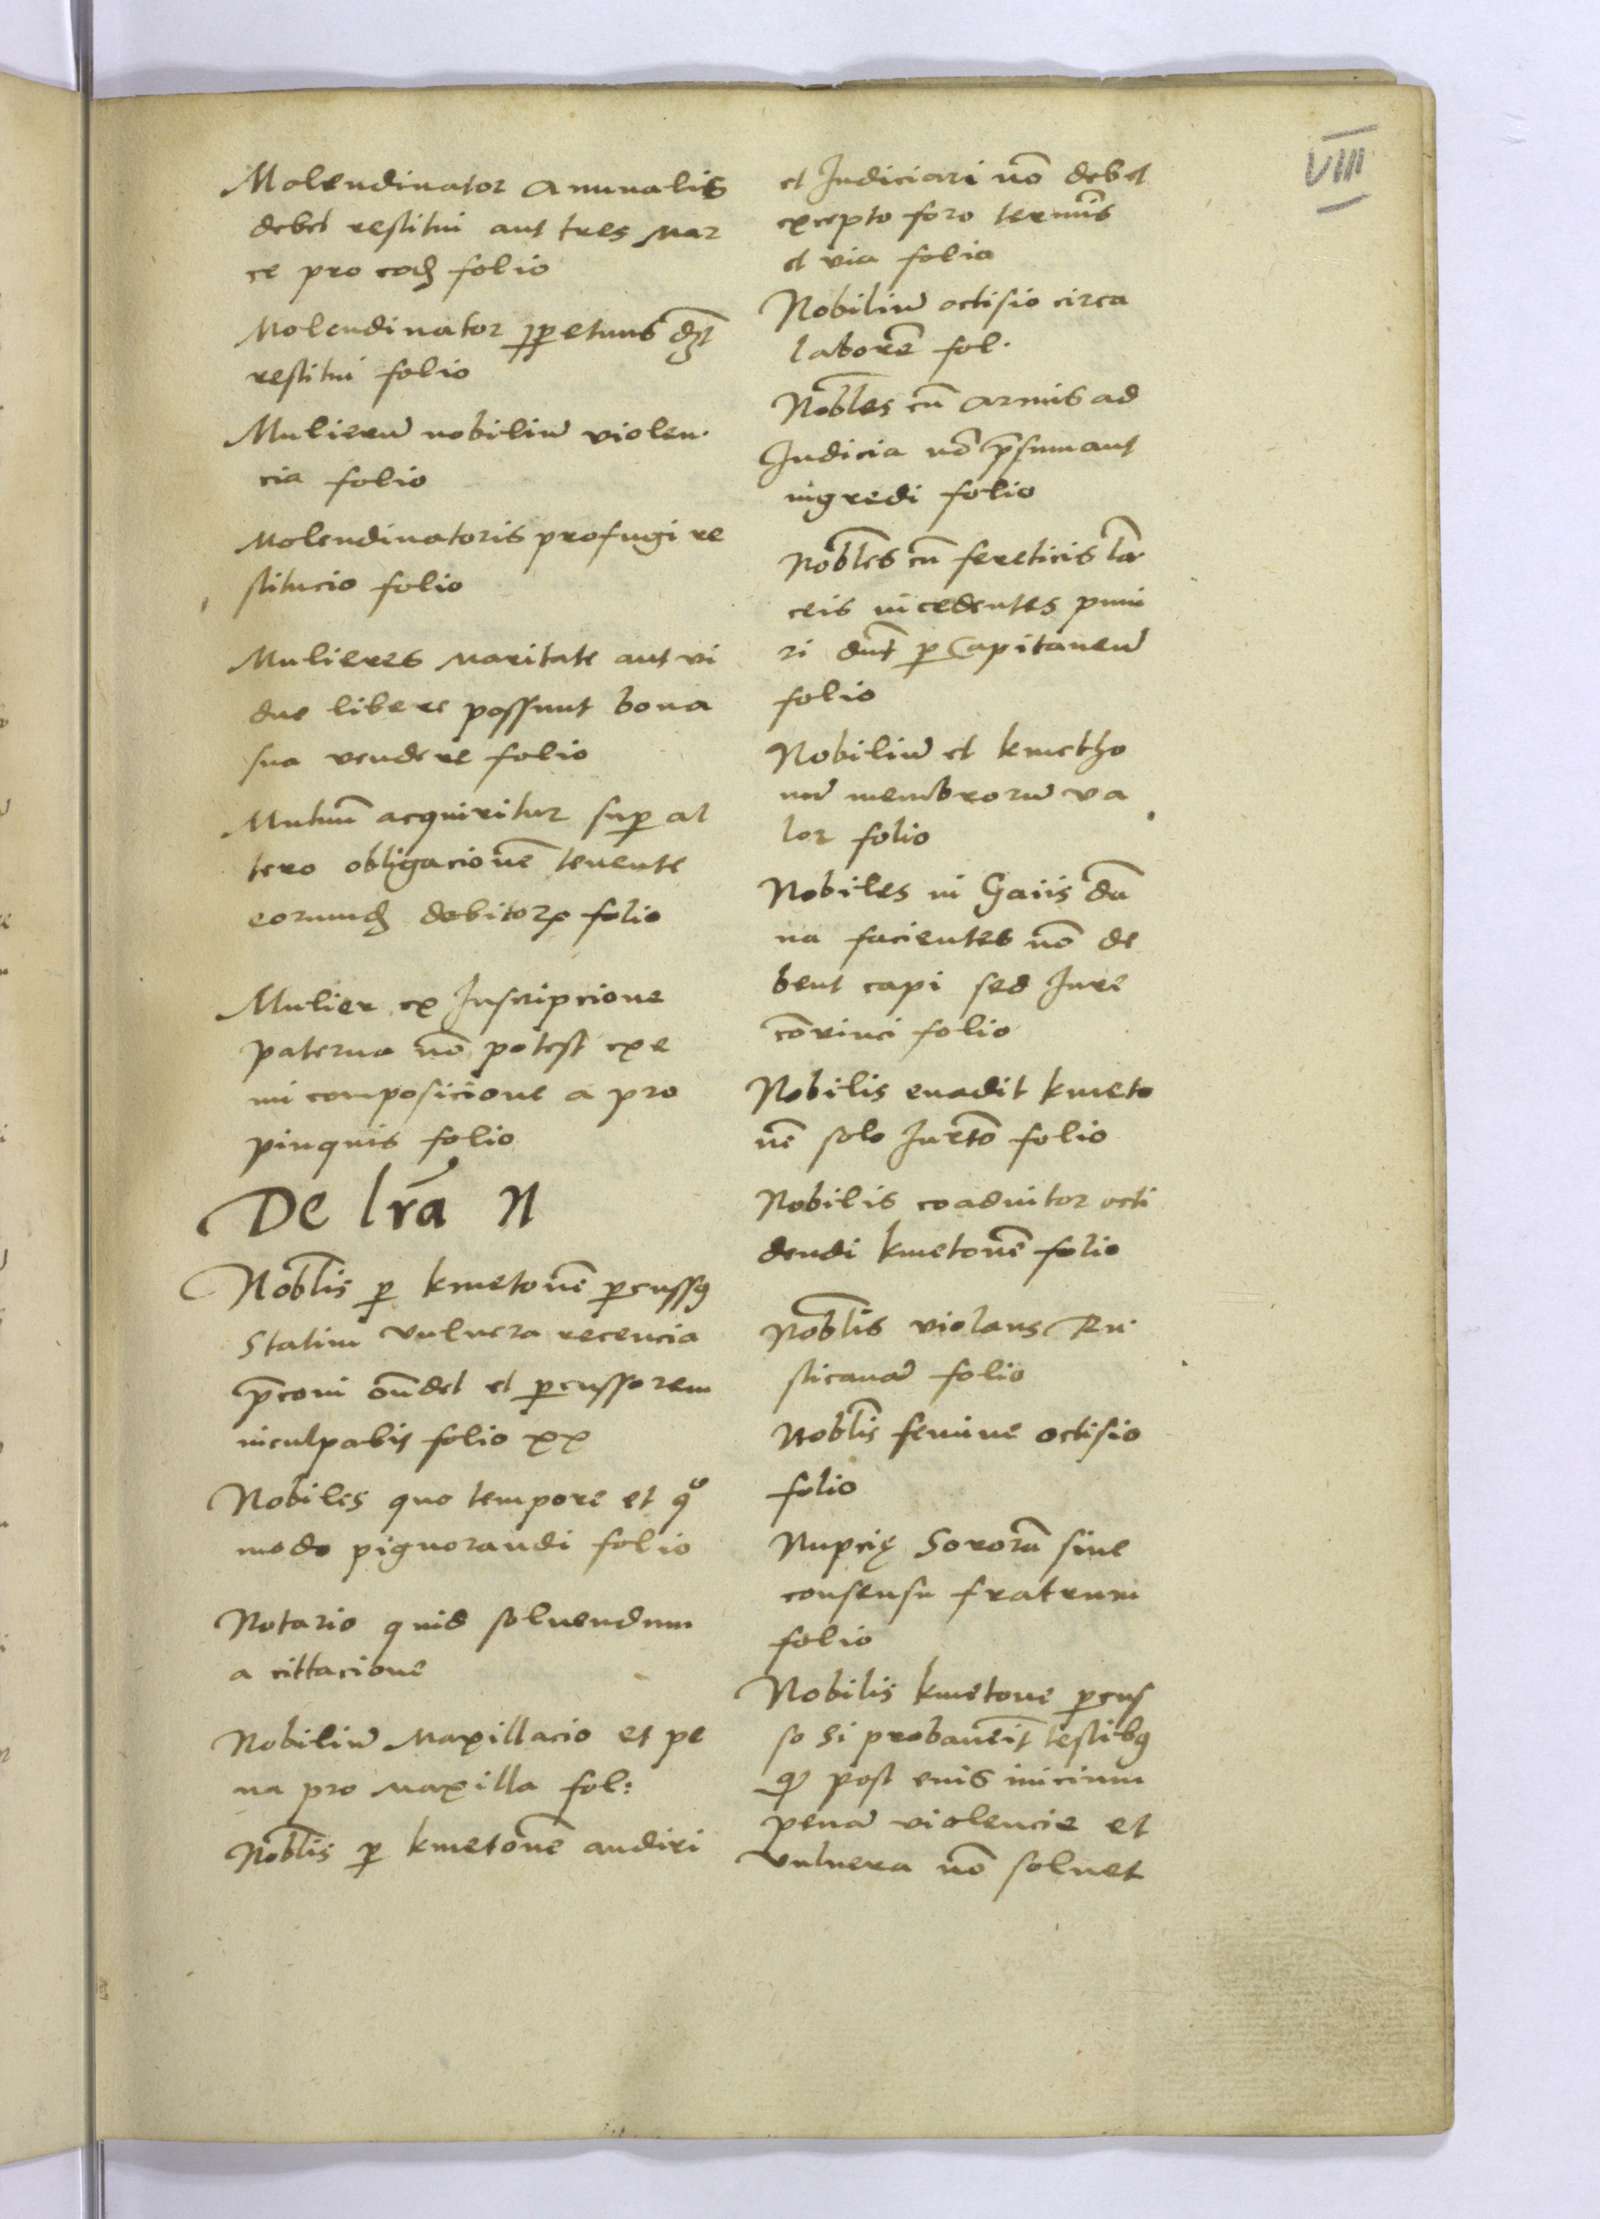 VIII
Molendinator Annualis
debet restitui aut tres mar
ce pro eod folio
Molendinator ppetuus dȝt
restitui folio
Mulierū nobiliū violen
cia folio
Molendinatoris profugi re
stitucio folio
Mulieres maritate aut vi
due libere possunt bona
sua vendere folio
Mutuū acquiritur sup al
tero obligacionē tenente
eorumd debitorꝝ folio
Mulier ex Inscripcione
paterna nō potest exe
mi composicione a pro
pinquis folio
De lrā N
Noblis ꝑ kmetonē ꝑcussꝰ
Statim vulnera recencia
p̄coni on̄det et ꝑcussorem
inculpabis folio xx
Nobiles quo tempore et qͦ
modo pignorandi folio
Notario quid soluendum
a cittacione
Nobiliū Maxillacio et pe
na pro maxilla fol:
Noblis ꝑ kmetonē audiri
et Judiciari nō debet
excepto foro termīs
et via folio
Nobiliū occisio circa
laborē fol.
Nobles cū armis ad
Judicia nō p̄sumant
ingredi folio
Nobles cū fereticis lā
ceis incedentes puni
ri dn̄t ꝑ Capitaneū
folio
Nobiliū et kmetho
nū membrorū va
lor folio
Nobiles in Gaiis dā
na facientes nō de
bent capi sed Jure
cōvinci folio
Nobilis euadit kmeto
nē solo Jurtō folio
Nobilis coadiutor occi
dendi kmetonē folio
Noblis violans Ru
sticanā folio
Noblis femine occisio
folio
Nupcię Sororū sine
consensu fratrum
folio
Nobilis kmetone ꝑcus
so si probauerit testibꝫ
qꝫ post eius inicium
penā violencie et
vulnera nō soluet